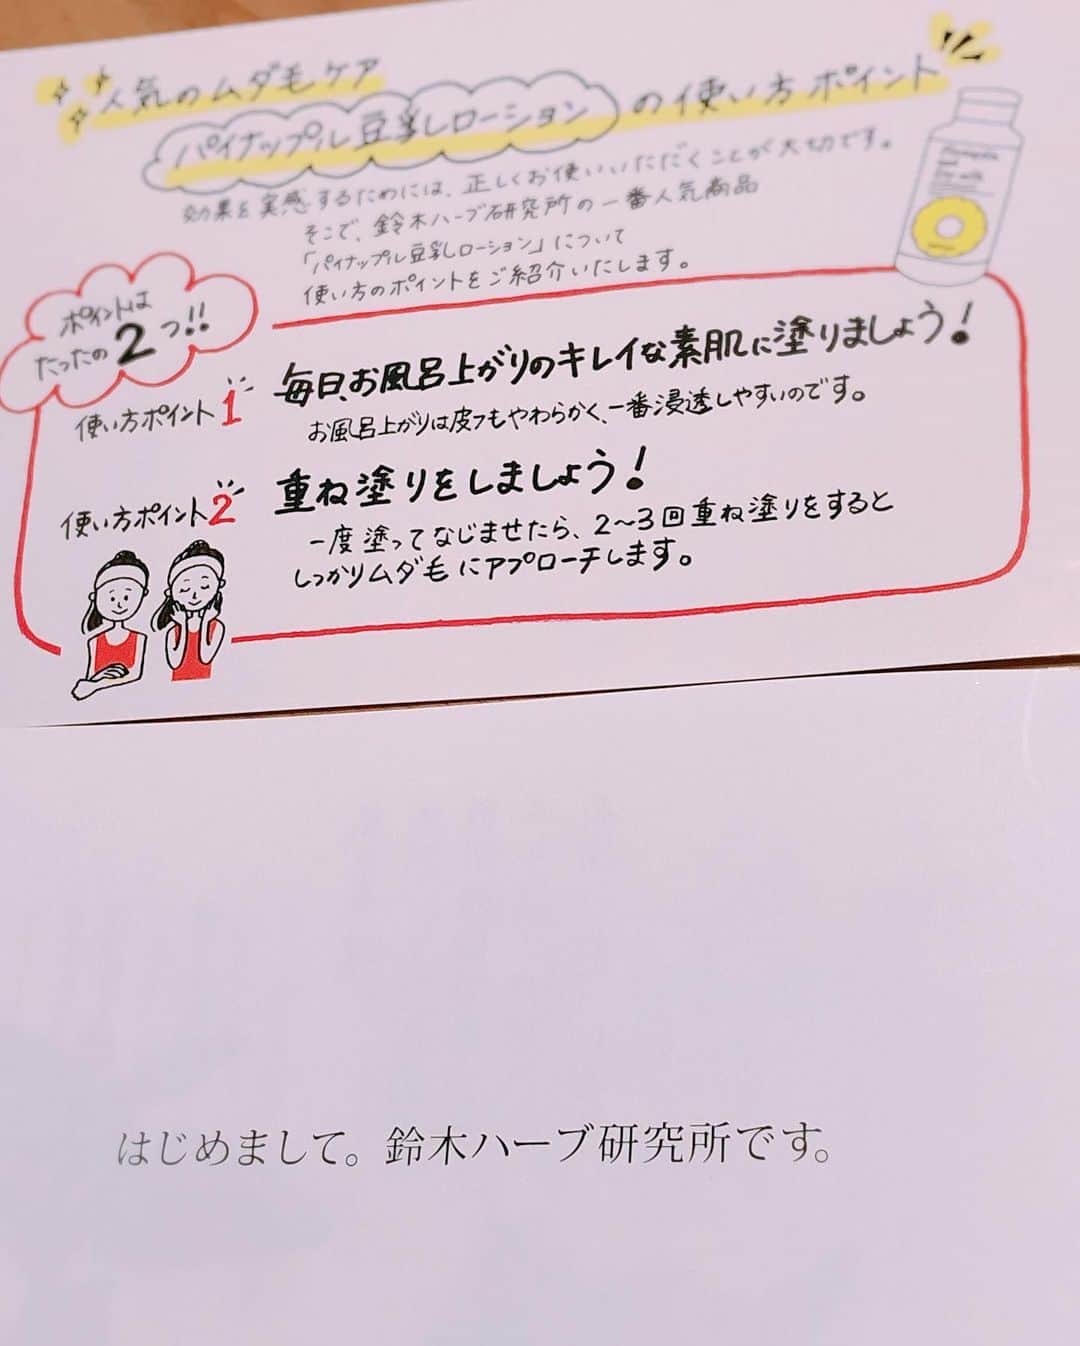 人気のムダ毛ケア
パイナップル豆乳ローション の使い方ポイント
効果を実感するためには、正しくお使いいただくことが大切です。
そこで、鈴木ハーブ研究所の一番人気商品
「パイナップル豆乳ローション」について
使い方のポイントをご紹介いたします。
ポイントは
たったの2つ!!
使い方ポイント1 毎日、お風呂上がりのキレイな素肌に塗りましょう!
お風呂上がりは皮フもやわらかく、一番浸透しやすいのです。
使い方ポイント2 重ね塗りをしましょう!
一度塗ってなじませたら、2〜3回重ね塗りをすると
しっかりムダ毛にアプローチします。
はじめまして。鈴木ハーブ研究所です。